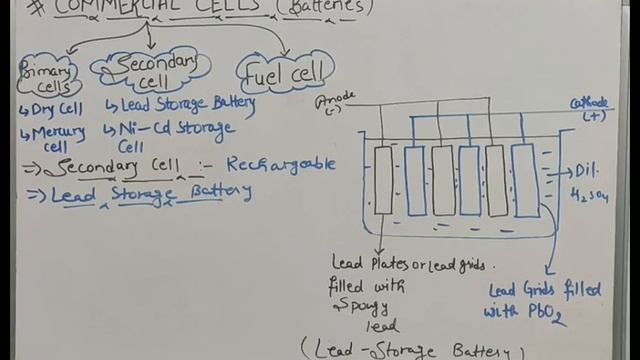 * COMMERCIAL CELLS (Batteries)
Primary cells
Secondary cell
Fuel cell
↳ Dry Cell
↳ Mercury cell
↳ Lead Storage Battery
↳ Ni-Cd Storage Cell
⇒ Secondary Cell :- Rechargeable
⇒ Lead Storage Battery
Anode
(-)
Cathode
(+)
Dil.
H₂SO₄
Lead Plates or Lead grids
filled with
Spongy
lead
Lead Grids filled
with PbO₂
(Lead-Storage Battery)